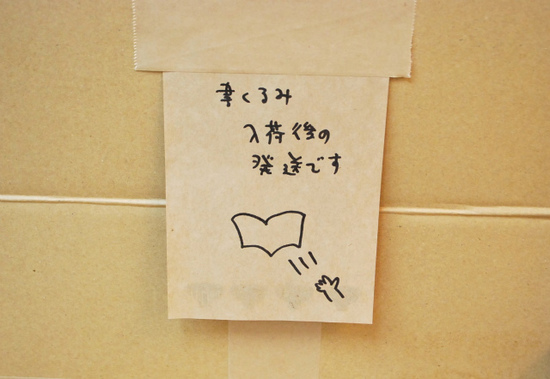 書くるみ
入荷後の
発送です